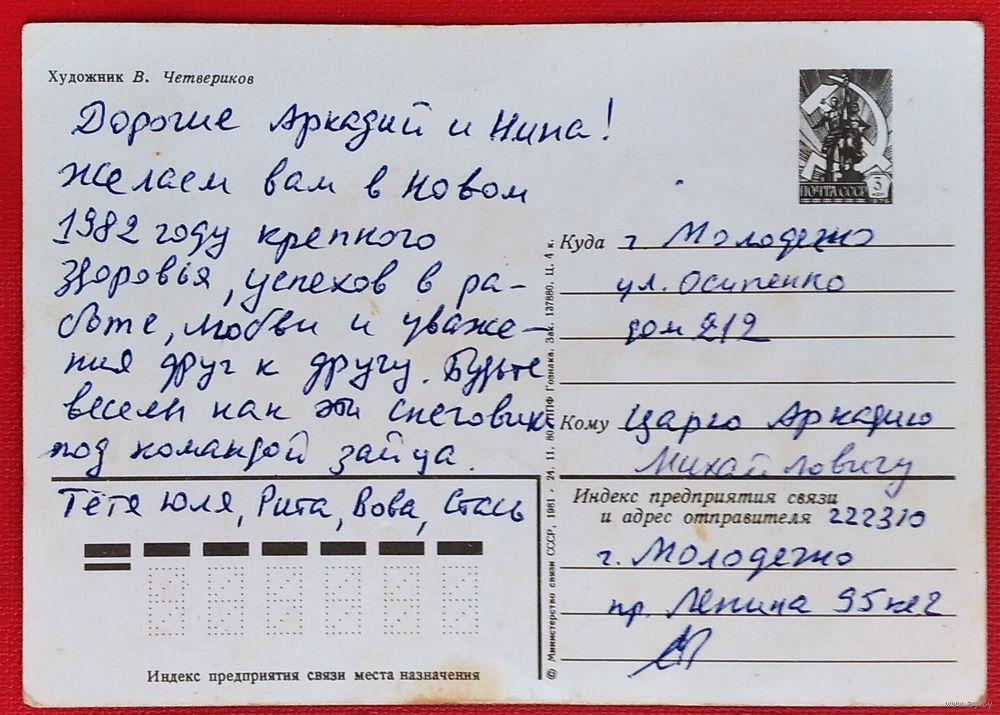 Художник В. Четвериков
Дорогие Аркадий и Нина!
Желаем вам в Новом
1982 году крепкого
здоровья, успехов в ра-
боте, любви и уваже-
ния друг к другу. Будьте
веселы как эти снеговики
под командой зайца.
Тётя Юля, Рита, Вова, Стась
Индекс предприятия связи места назначения
ПОЧТА СССР 3 коп
1976
Куда г Молодечно
ул. Осипенко
дом 212
Кому Царго Аркадию
Михайловичу
Индекс предприятия связи
и адрес отправителя 222310
г. Молодечно
пр. Ленина 95 кв 2
© Министерство связи СССР, 1981 · 24. 11. 80. ППФ Гознака. Зак. 137880. Ц. 4 к.
www.ay.by